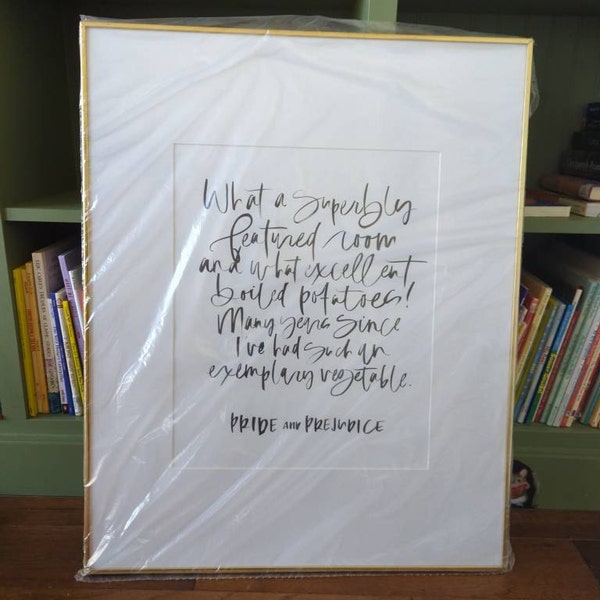 What a superbly
featured room
and what excellent
boiled potatoes!
Many years since
I've had such an
exemplary vegetable.
PRIDE AND PREJUDICE